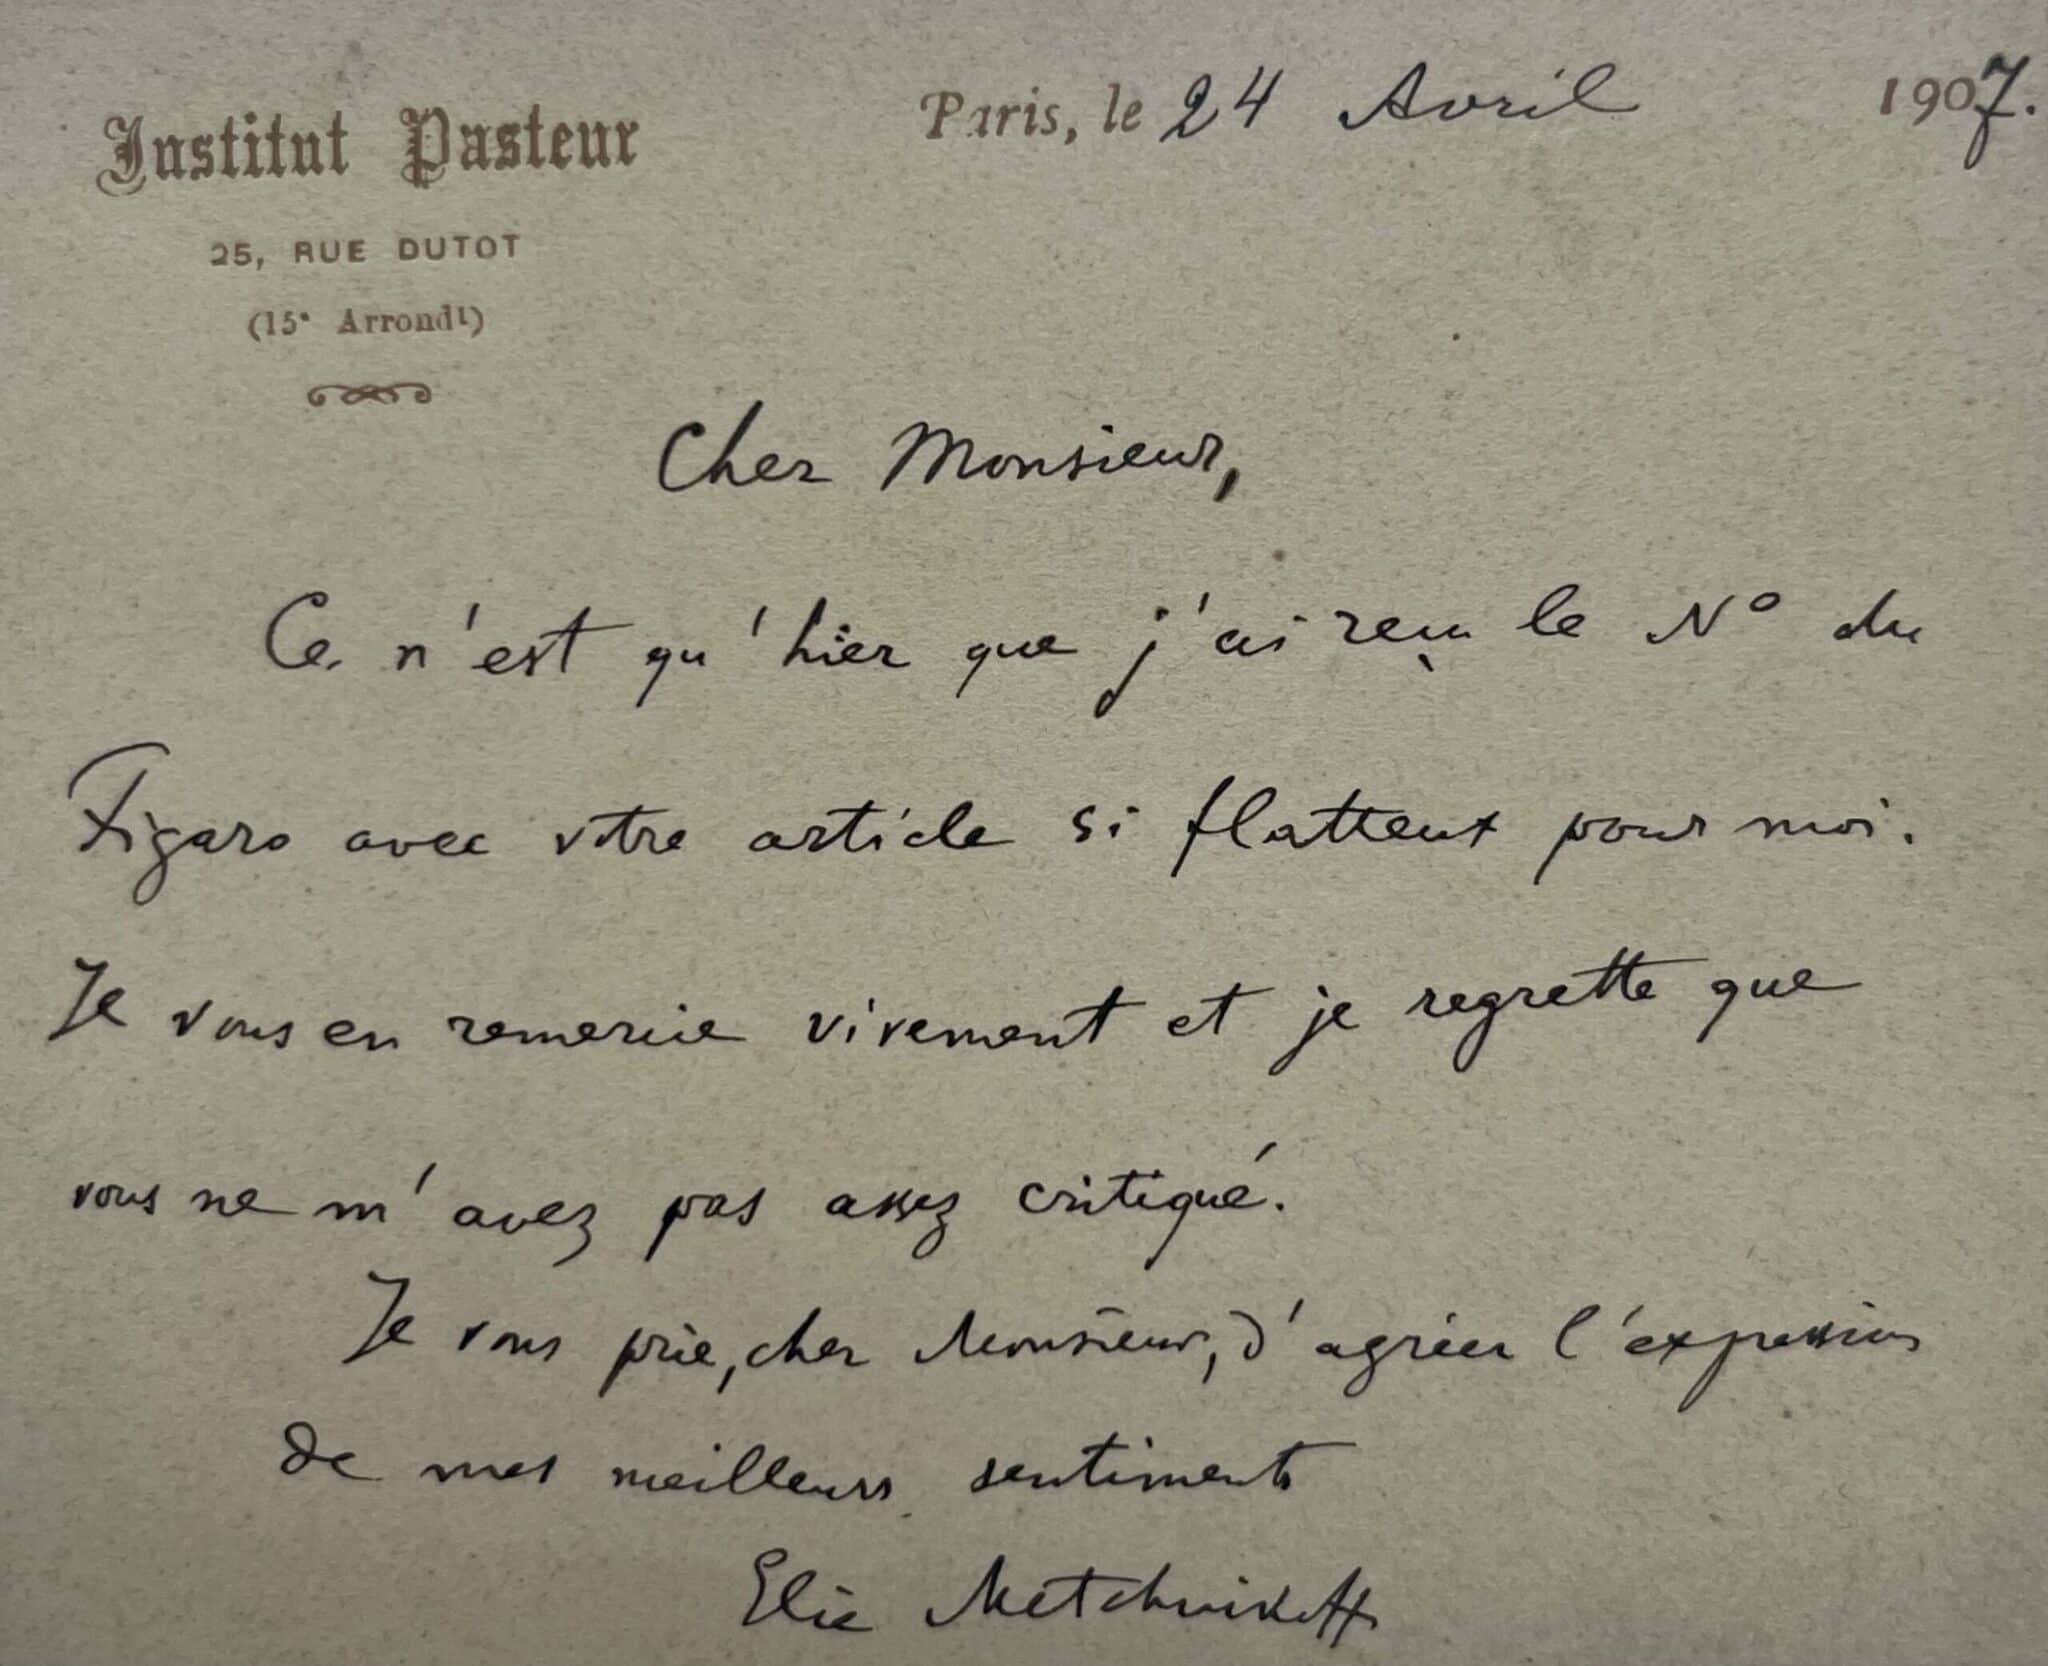 Institut Pasteur
25, RUE DUTOT
(15e Arrondt)
Paris, le 24 Avril 1907.
Cher Monsieur,
Ce n'est qu'hier que j'ai reçu le No du
Figaro avec votre article si flatteux pour moi.
Je vous en remercie vivement et je regrette que
vous ne m'avez pas assez critiqué.
Je vous prie, cher Monsieur, d'agréer l'expression
de mes meilleurs sentiments
Elie Metchnikoff